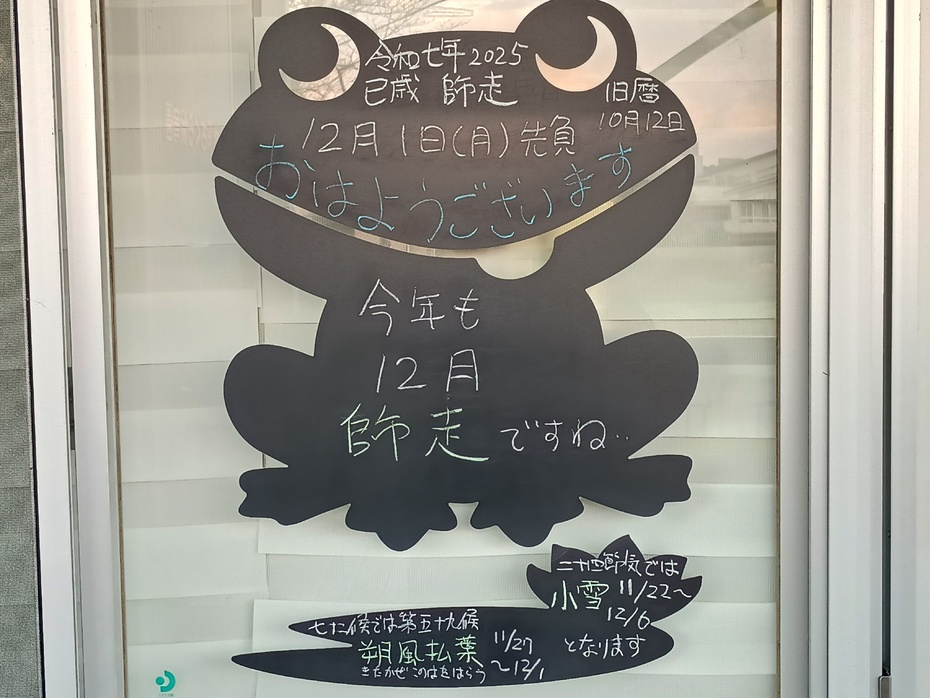 令和七年2025
巳歳 師走
旧暦
10月12日
12月1日(月)先負
おはようございます
今年も
12月
師走ですね..
二十四節気では
小雪 11/22〜
12/6
となります
七十二候では第五十九候
朔風払葉 11/27
〜12/1
きたかぜこのはをはらう